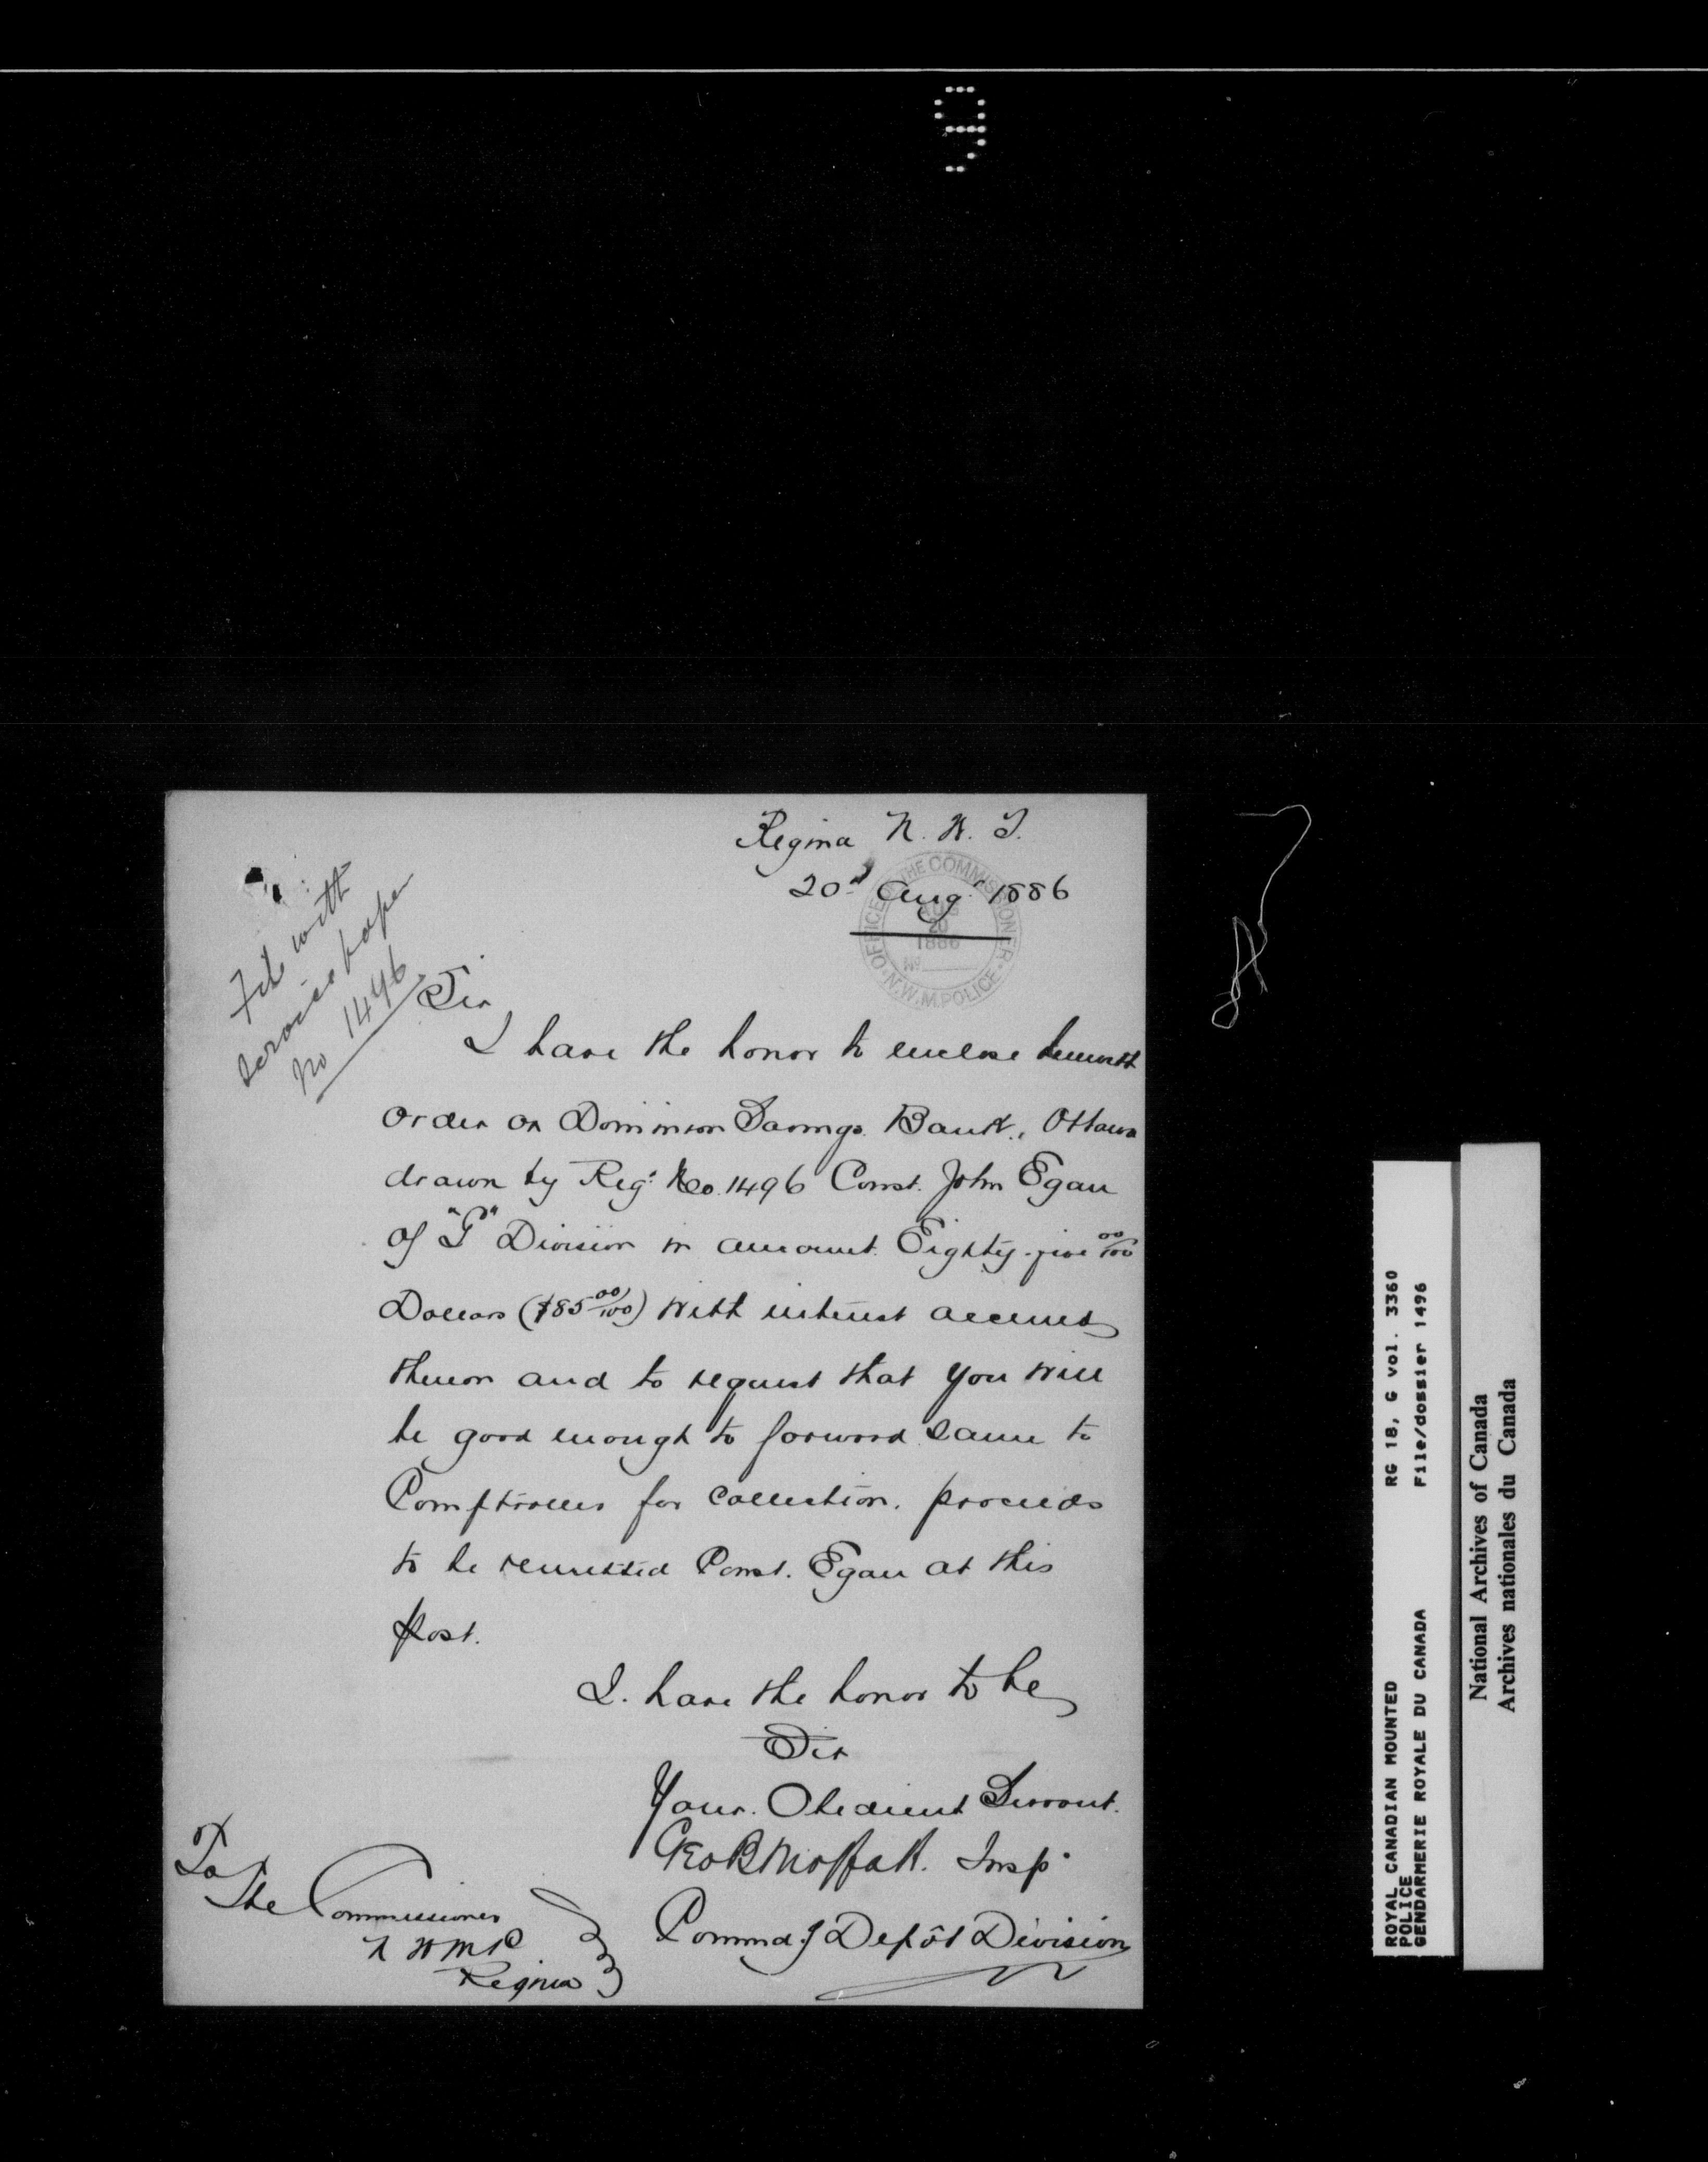 9
Regina N. W. T.
20th Augt 1886
OFFICE OF THE COMMISSIONER
AUG
20
1886
No
N.W.M. POLICE
File with
service paper
No 1496
Sir
I have the honor to enclose herewith
order on Dominion Savings Bank, Ottawa
drawn by Reg: No. 1496 Const. John Egan
of "G" Division in amount Eighty-five 00/100
Dollars ($85 00/100) with interest accrued
thereon and to request that you will
be good enough to forward same to
Comptroller for collection. proceeds
to be remitted Const. Egan at this
post.
I. have the honor to be
Sir
Your. Obedient Servant.
Geo B Moffatt. Insp.
Commdg Depôt Division
To
The Commissioner
N W M P
Regina
ROYAL CANADIAN MOUNTED RG 18, G vol. 3360
POLICE
GENDARMERIE ROYALE DU CANADA File/dossier 1496
National Archives of Canada
Archives nationales du Canada